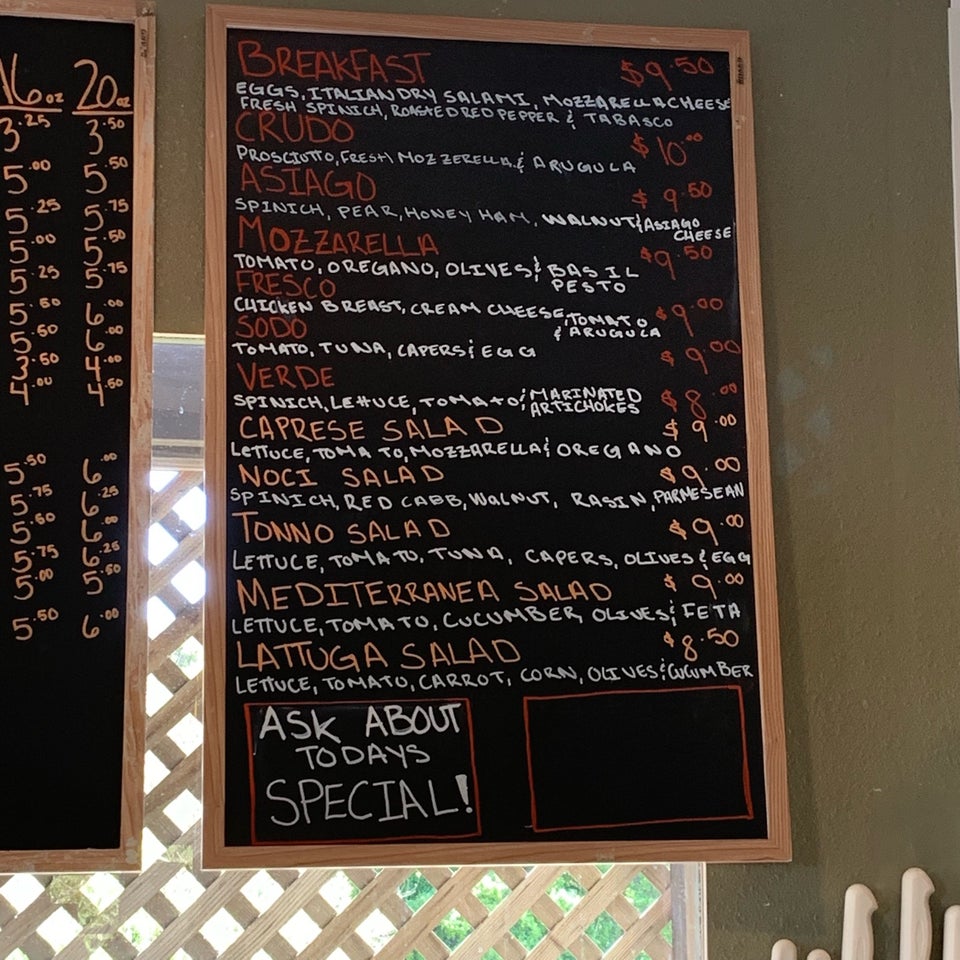 16 oz 20 oz
3.25 3.50
5.00 5.50
5.25 5.75
5.00 5.50
5.25 5.75
5.50 6.00
5.50 6.00
3.50 4.00
4.00 4.50
5.50 6.00
5.75 6.25
5.50 6.00
5.75 6.25
5.00 5.50
5.50 6.00
BREAKFAST $9.50
EGGS, ITALIAN DRY SALAMI, MOZZARELLA CHEESE
FRESH SPINICH, ROASTED RED PEPPER & TABASCO
CRUDO $10.00
PROSCIUTTO, FRESH MOZZERELLA & ARUGULA
ASIAGO $9.50
SPINICH, PEAR, HONEY HAM, WALNUT & ASIAGO
CHEESE
MOZZARELLA $9.50
TOMATO, OREGANO, OLIVES & BASIL
PESTO
FRESCO $9.00
CHICKEN BREAST, CREAM CHEESE, TOMATO
& ARUGULA
SODO $9.00
TOMATO, TUNA, CAPERS & EGG
VERDE $8.00
SPINICH, LETTUCE, TOMATO & MARINATED
ARTICHOKES
CAPRESE SALAD $9.00
LETTUCE, TOMATO, MOZZARELLA & OREGANO
NOCI SALAD $9.00
SPINICH, RED CABB, WALNUT, RASIN, PARMESEAN
TONNO SALAD $9.00
LETTUCE, TOMATO, TUNA, CAPERS, OLIVES & EGG
MEDITERRANEA SALAD $9.00
LETTUCE, TOMATO, CUCUMBER, OLIVES & FETA
LATTUGA SALAD $8.50
LETTUCE, TOMATO, CARROT, CORN, OLIVES & CUCUMBER
ASK ABOUT
TODAYS
SPECIAL!